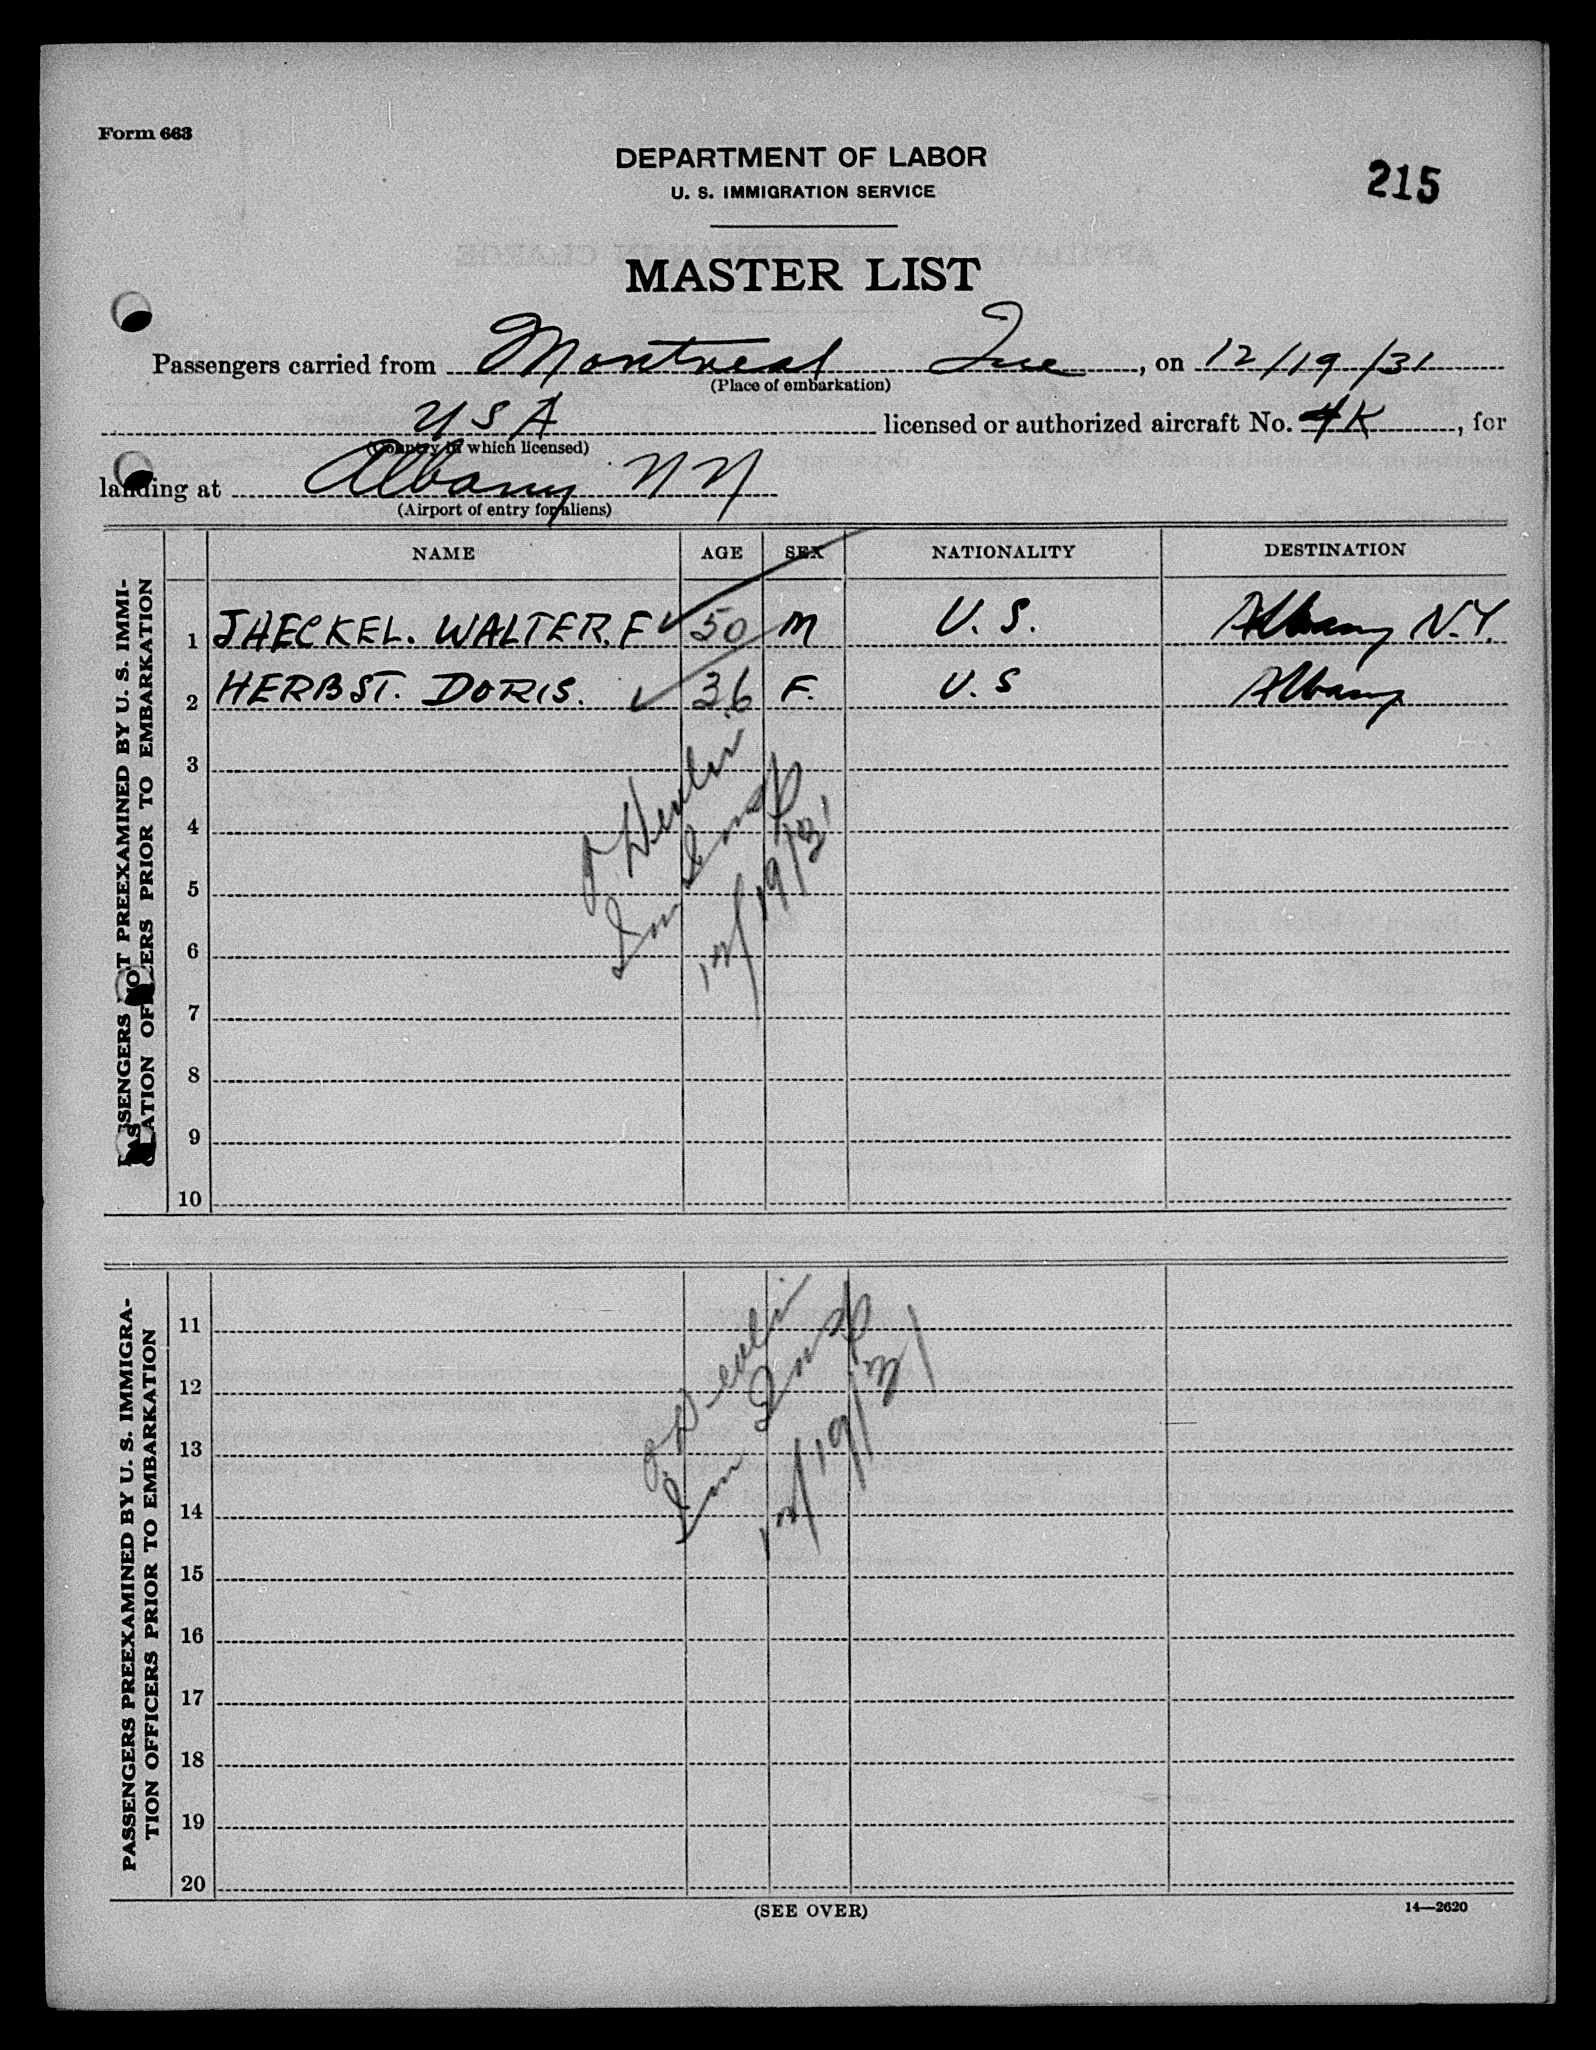 Form 663
DEPARTMENT OF LABOR
U. S. IMMIGRATION SERVICE
215
MASTER LIST
Passengers carried from Montreal Que, on 12/19/31
(Place of embarkation)
USA licensed or authorized aircraft No. 4K, for
(Country in which licensed)
landing at Albany NY
(Airport of entry for aliens)
NAME AGE SEX NATIONALITY DESTINATION
PASSENGERS NOT PREEXAMINED BY U. S. IMMI-
GRATION OFFICERS PRIOR TO EMBARKATION
1 JHECKEL. WALTER. F 50 M U. S. Albany N.Y.
2 HERBST. DORIS. 36 F. U. S Albany
3
4
5
6
7
8
9
10
Imm Insp
12/19/31
PASSENGERS PREEXAMINED BY U. S. IMMIGRA-
TION OFFICERS PRIOR TO EMBARKATION
11
12
13
14
15
16
17
18
19
20
Devlin
Imm Insp
12/19/31
(SEE OVER)
14—2620